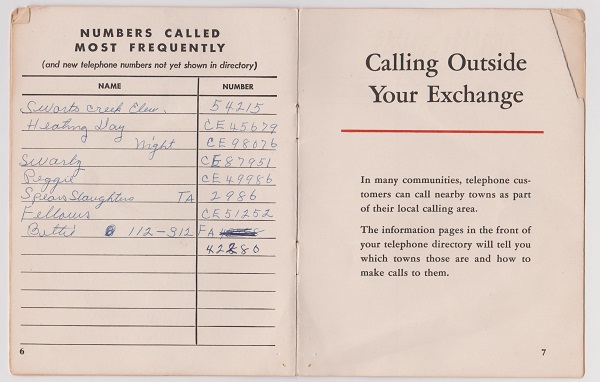 NUMBERS CALLED
MOST FREQUENTLY
(and new telephone numbers not yet shown in directory)
NAME NUMBER
Swarts Creek Elem. 54215
Heating Day CE 45679
Night CE 98076
Swartz CE 87951
Peggie CE 49986
Spears Slaughters TA 2986
Fellows CE 51252
Bettie 112-312 FA
42280
6
Calling Outside
Your Exchange
In many communities, telephone cus-
tomers can call nearby towns as part
of their local calling area.
The information pages in the front of
your telephone directory will tell you
which towns those are and how to
make calls to them.
7